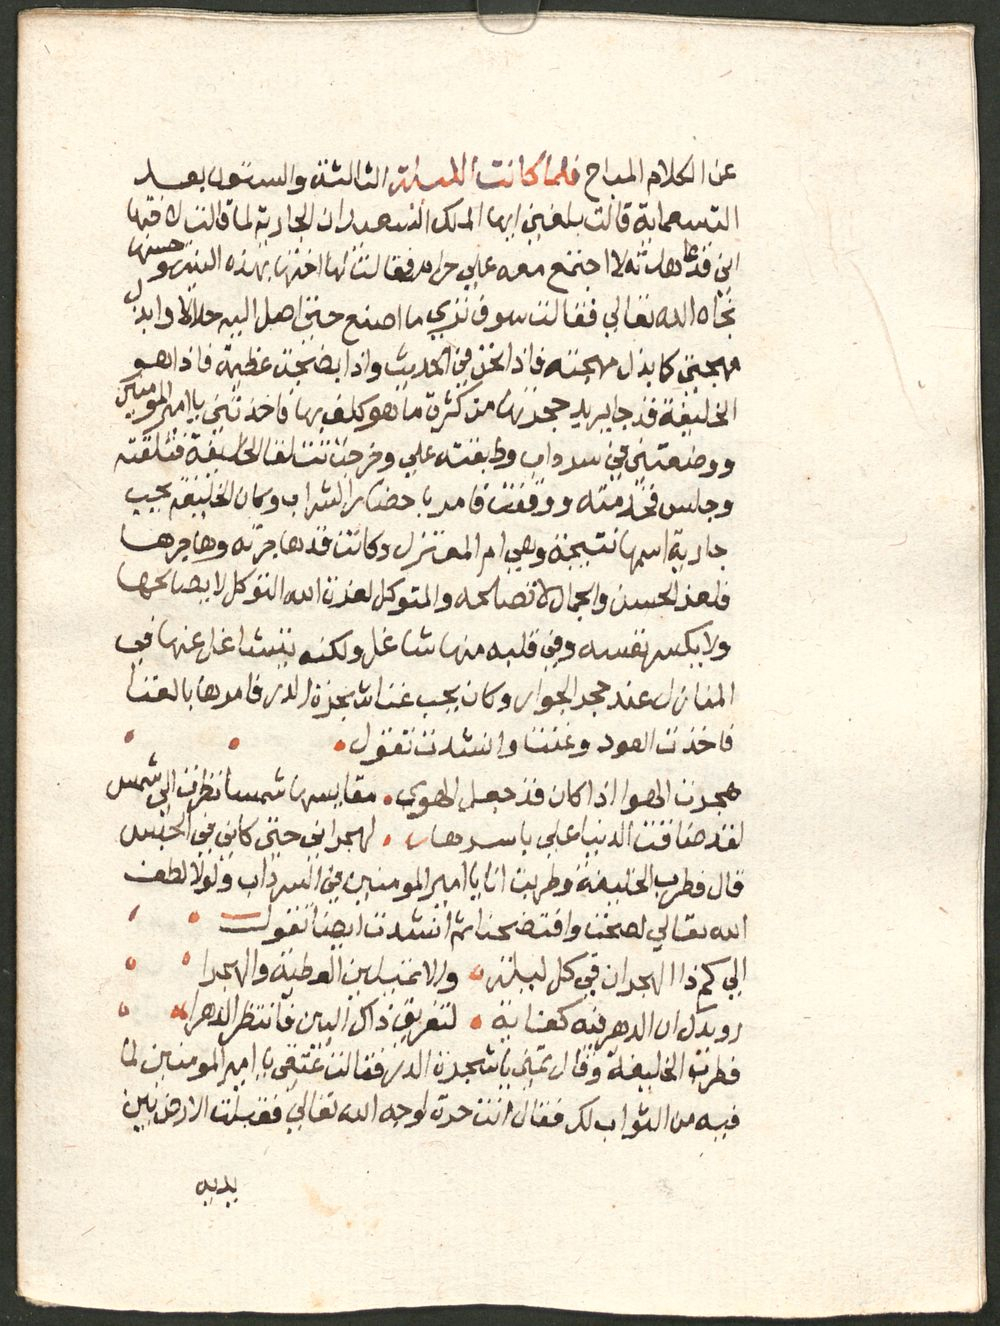 عن الكلام المباح فلما كانت الليلة الثالثة والستون بعد
التسعماية قالت بلغني ايها الملك السعيد ان الجارية لما قالت لاختها
اني قد عاهدته لا اجتمع معه علي حرام فقالت لها اختها بهذه النية وحسنها
نجاه الله تعالي فقالت سوف تري ما اصنع حتي اصل اليه حلالا وابذل
مهجتي كما بذل مهجته فاذا نحن في الحديث واذا بضجة عظيمة فاذا هو
الخليفة قد جا يريد حجرتها من كثرة ما هو كلف بها فاخذتني يا امير المومنين
ووضعتني في سرداب وطبقته علي وخرجت تتلقا الخليفة فتلقته
وجلس فخدمته ووقفت فامر باحضار الشراب وكان الخليفة يحب
جارية اسمها نتيجة وهي ام المعتز وكانت قد هاجرته وهاجرها
فلعز الحسن والجمال لا تصالحه والمتوكل لعزة الله التوكل لا يصالحها
ولا يكسر نفسه وفي قلبه منها شاغل ولكنه يتشاغل عنها في
المنازل عند حجر الجوار وكان يحب غنا شجرة الدر فامرها بالغنا
فاخذت العود وغنت وانشدت تقول
هجرت الهوا اذا كان قد جعل الهوي مقايسها شمسا نظرت الي شمس
لقد ضاقت الدنيا علي باسرها لهجراني حتي كاني في الحبس
قال فطرب الخليفة وطربت انا يا امير المومنين في السرداب ولولا لطف
الله تعالي لصحت وافتضحنا ثم انشدت ايضا تقول
الي كم ذا الهجران في كل ليلة والا تميلين القطيعة والهجرا
رويدك ان الدهر فيه كفاية لتفريق ذاك البين فانتظر الدهرا
فطرب الخليفة وقال تمني يا شجرة الدر فقالت عتقي يا امير المومنين لما
فيه من الثواب لك فقال انت حرة لوجه الله تعالي فقبلت الارض بين
يديه